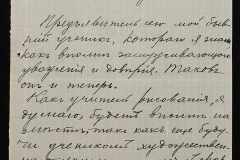 Предъявитель сего мой быв-
ший ученик, котораго я знаю
какъ вполнѣ заслуживающаго
уваженія и довѣрія. Таковъ
онъ и теперь.
Какъ учитель рисованія, я
думаю, будетъ вполнѣ на
мѣстѣ, такъ какъ еще буду-
чи ученикомъ художествен-